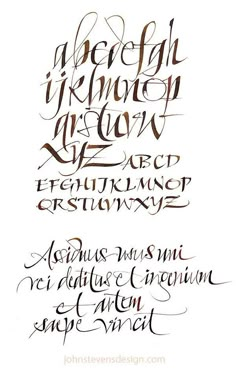 abcdefgh
ijklmnop
qrstuvw
xyz ABCD
EFGHIJKLMNOP
QRSTUVWXYZ
Assiduus usus uni
rei deditus et ingenium
et artem
saepe vincit
johnstevensdesign.com